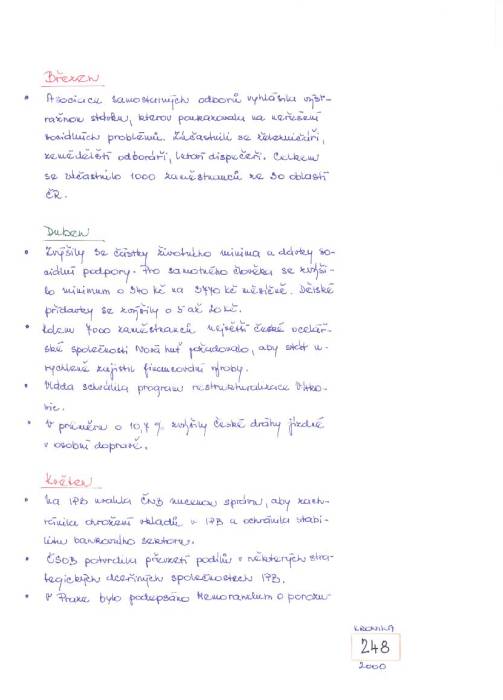 Březen
• Asociace samostatných odborů vyhlásila výst-
ražnou stávku, kterou poukazovala na neřešení
sociálních problémů. Zúčastnili se železničáři,
zemědělští odboráři, letoví dispečeři. Celkem
se účastnilo 1000 zaměstnanců ze 30 oblastí
ČR.
Duben
• Zvýšily se částky životního minima a dávky so-
ciální podpory. Pro samotného člověka se zvýši-
lo minimum o 340 kč na 3770 kč měsíčně. Dětské
přídavky se zvýšily o 5 až 20 kč.
• Kolem 7000 zaměstnanců největší české ocelář-
ské společnosti Nová huť požadovalo, aby stát u-
rychleně zajistil financování výroby.
• Vláda schválila program restrukturalizace Vítko-
vic.
• V průměru o 10,7 % zvýšily České dráhy jízdné
v osobní dopravě.
Květen
• Na IPB uvalila ČNB nucenou správu, aby zach-
ránila ohrožení vkladů v IPB a ochránila stabi-
litu bankovního sektoru.
• ČSOB potvrdila převzetí podílů v některých stra-
tegických dceřiných společnostech IPB.
• V Praze bylo podepsáno Memorandum o porozu-
KRONIKA
248
2000